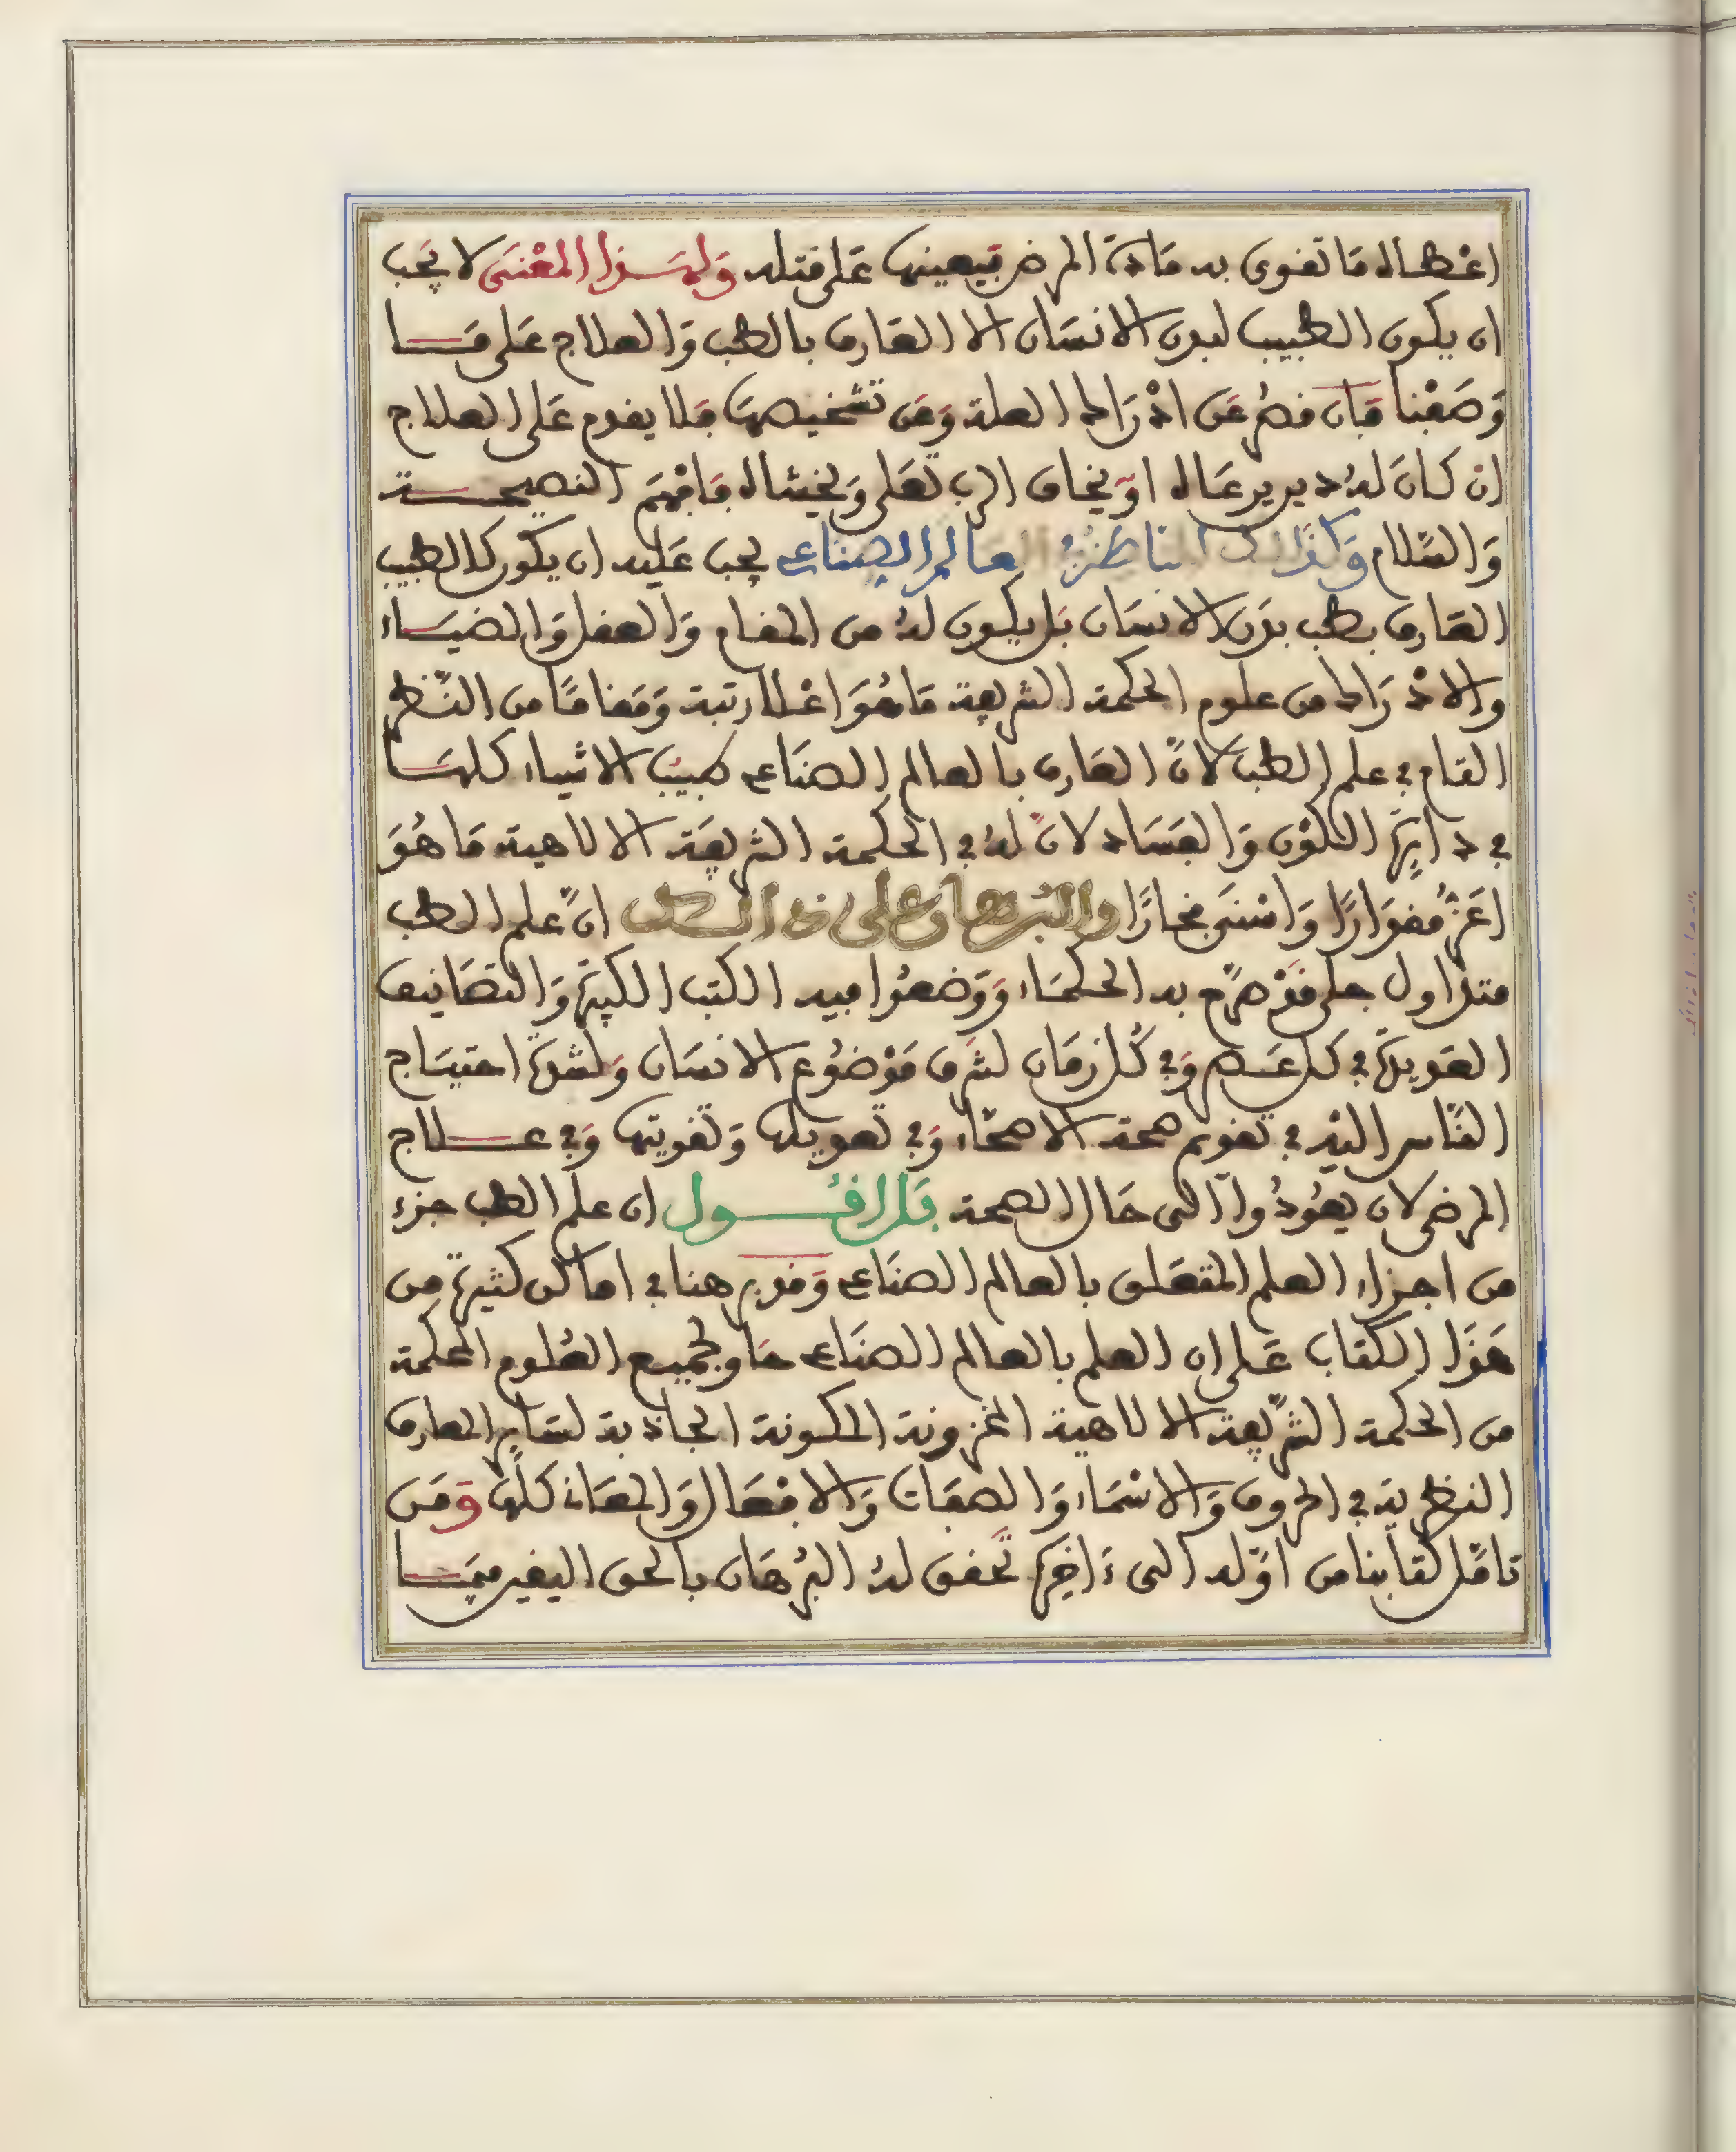 اعْطاه مَا تقوى به مَادة المرض فيعينها عَلى قتله وَلهَذا المعْنَى لا يَجب
ان يكون الطبيب لبدن الانسَان الا العَارف بالطب وَالعلاج عَلى مَا
وَصَفْنا فَان قصُر عَن ادْرَاك العلة وَعَن تشخيصهَا فَلا يقدم عَلى العلاج
انْ كانَ لهُ دين يرعَاه اوْ يخاف الرب تعَلى وَيخشاه فَافهَم النصيحة
وَالسّلام وَكذَلك الناظرُ في العالم الصناعي يجب عَليه ان يكون كالطبيب
العَارف بطب بدَن الانسَان بَل يكون لهُ من المقام وَالعقل وَالضيَاء
والادْرَاك من علوم الحكمة الشريفة مَا هُوَ اعْلا رتبة وَمَقامًا من النّظر
التام في علم الطب لانّ العَارف بالعالم الصنَاعي طبيبُ الاشياء كلهَا
في دَايرَة الكوْن وَالفسَاد لانّ لهُ في الحكمة الشريفَة الالاهية مَا هُوَ
اعَزّ مقدَارًا وَاسْنَى فخارًا والبُرهان على ذالك انّ علم الطب
متدَاول جلي قدْ صرّح به الحكمَاء وَوَضعُوا فيه الكتب الكثيرَة وَالتصَانيف
العَديدَة في كل عَصر وَفي كُل زمَان لشرَف مَوْضُوع الانسَان وَلشدّة احتيَاج
النّاس اليْه في تقويم صحة الاصحّاء وَفي تعديلهَا وَتقويتهَا وَفي علاج
المرضى لان يعُودُوا الى حَال الصحة بَل اقُول ان علم الطب جزء
من اجزاء العلم المتعَلق بالعالم الصنَاعي وَقد برهنا في اماكن كثيرَة من
هَذَا الكتاب عَلى ان العلم بالعالم الصنَاعي حَاو لجميع العُلوم المحكمة
من الحكمة الشّريفة الالاهية المخزونة المكنونة الجاذبة لسَاير المعارف
النظرية في الحروف وَالاسْمَاء وَالصفَات وَالافْعَال وَالمعَاني كلّهَا وَمَن
تامّل كتابنا من اوّله الى ءَاخِرَه تحَقق لهُ البُرهَان بالحق اليقين ممّا